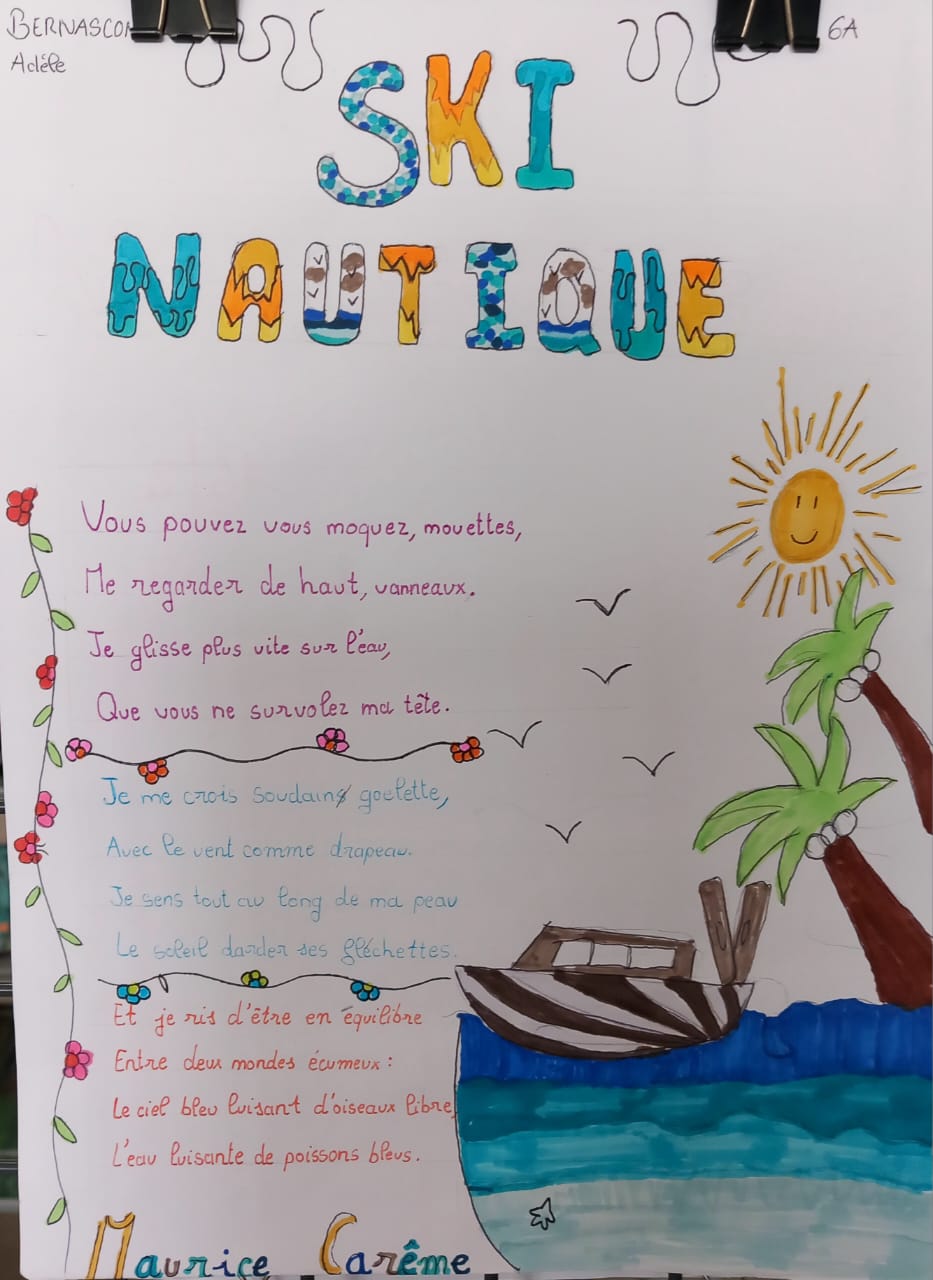 Adèle
6A
SKI
NAUTIQUE
Vous pouvez vous moquez, mouettes,
Me regarder de haut, vanneaux.
Je glisse plus vite sur l'eau,
Que vous ne survolez ma tête.
Je me crois soudain goelette,
Avec le vent comme drapeau.
Je sens tout au long de ma peau
Le soleil darder ses fléchettes.
Et je ris d'être en équilibre
Entre deux mondes écumeux :
Le ciel bleu luisant d'oiseaux libre,
L'eau luisante de poissons bleus.
Maurice Carême